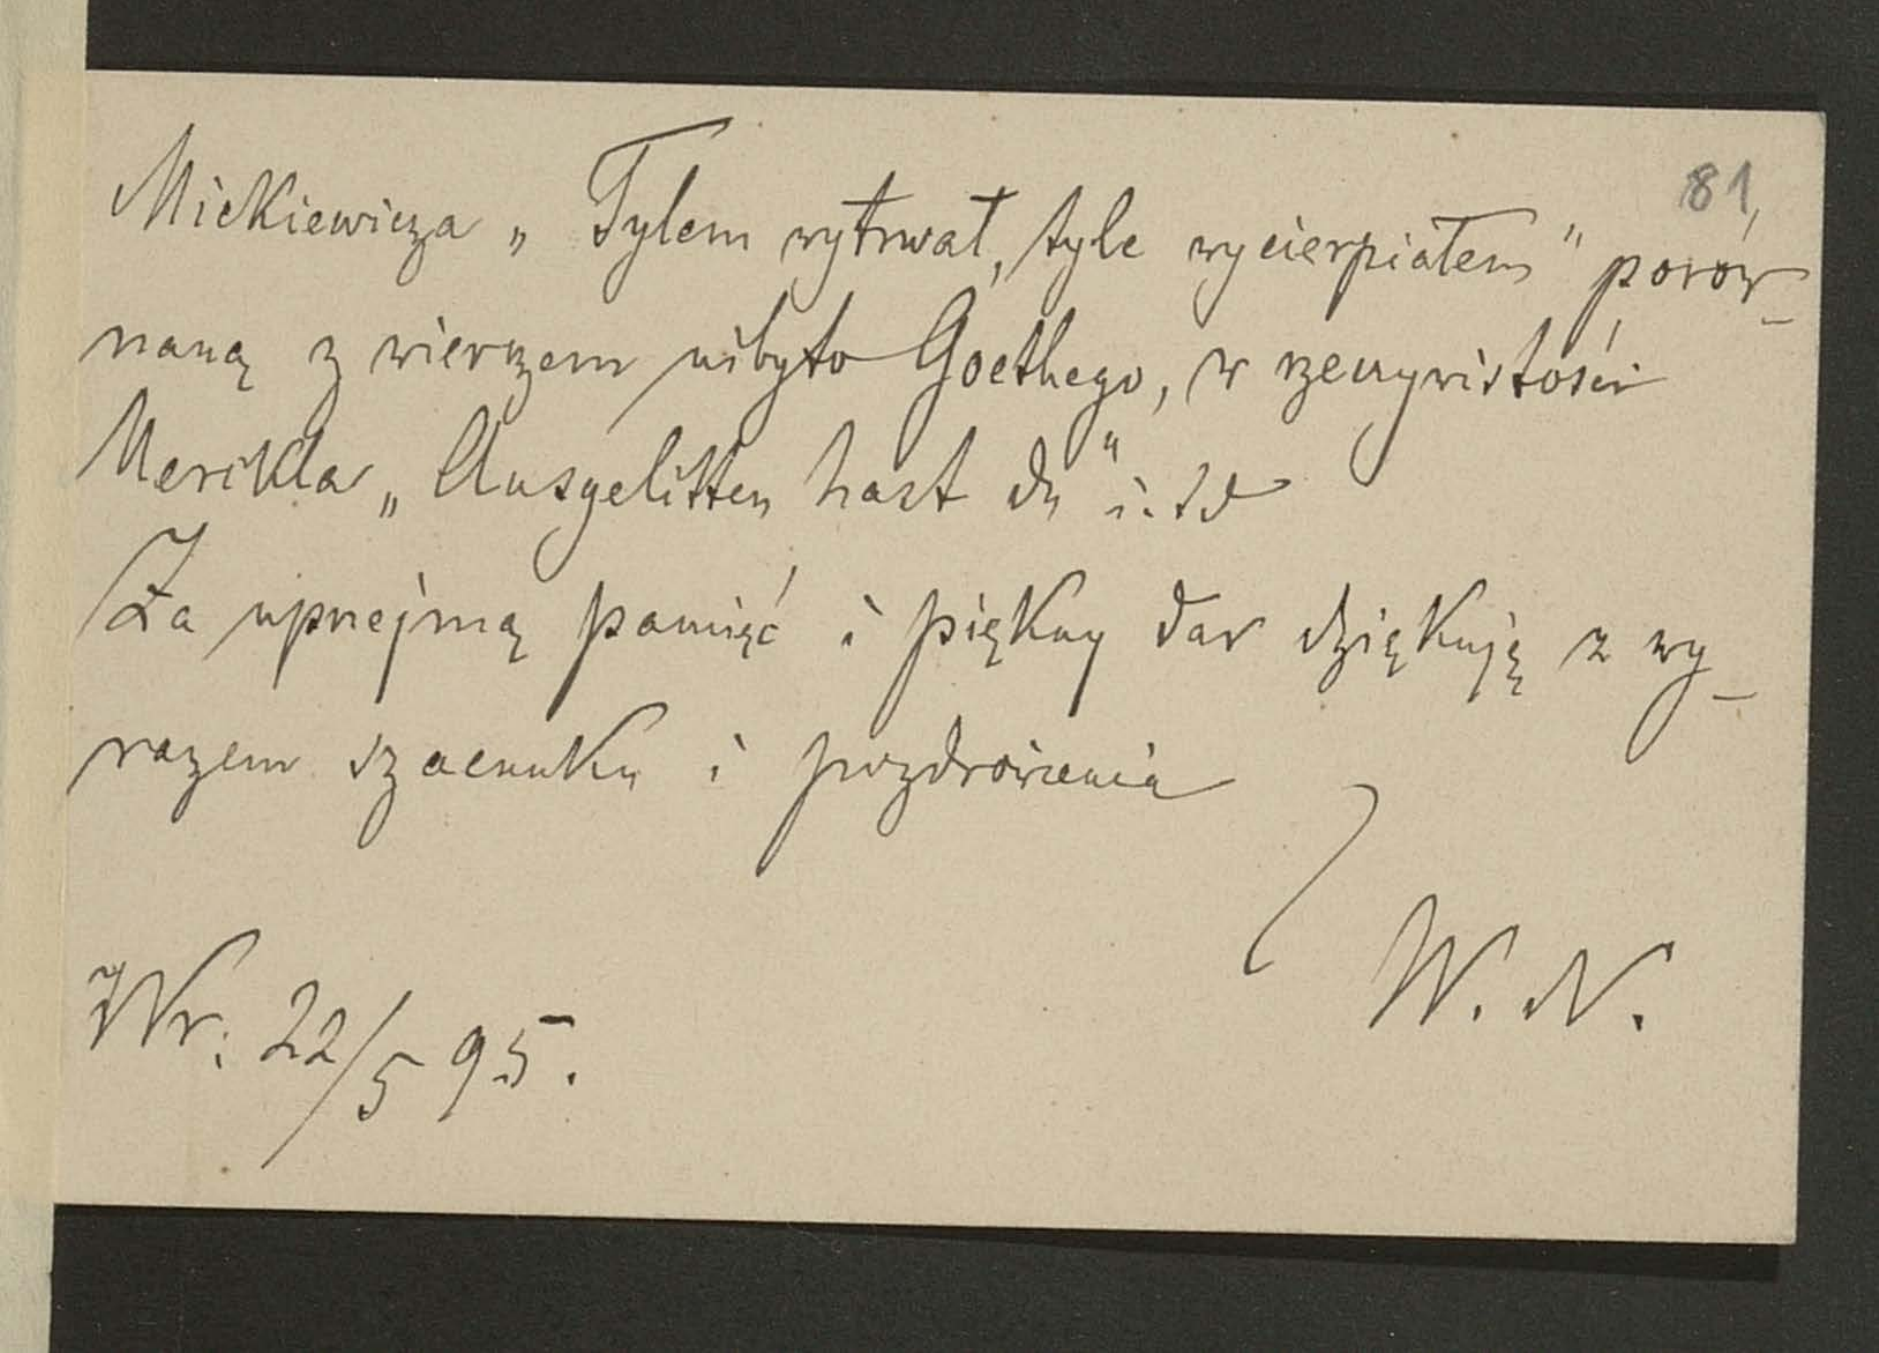 81
Mickiewicza „Tylem wytrwał, tyle wycierpiałem" porów-
naną z wierszem niby to Goethego, w rzeczywistości
„Ausgelitten hast du" i. t d
Za uprzejmą pamięć i piękny dar dziękuję z wy-
razem szacunku i pozdrowienia
W. N.
Wr. 22/5 95.